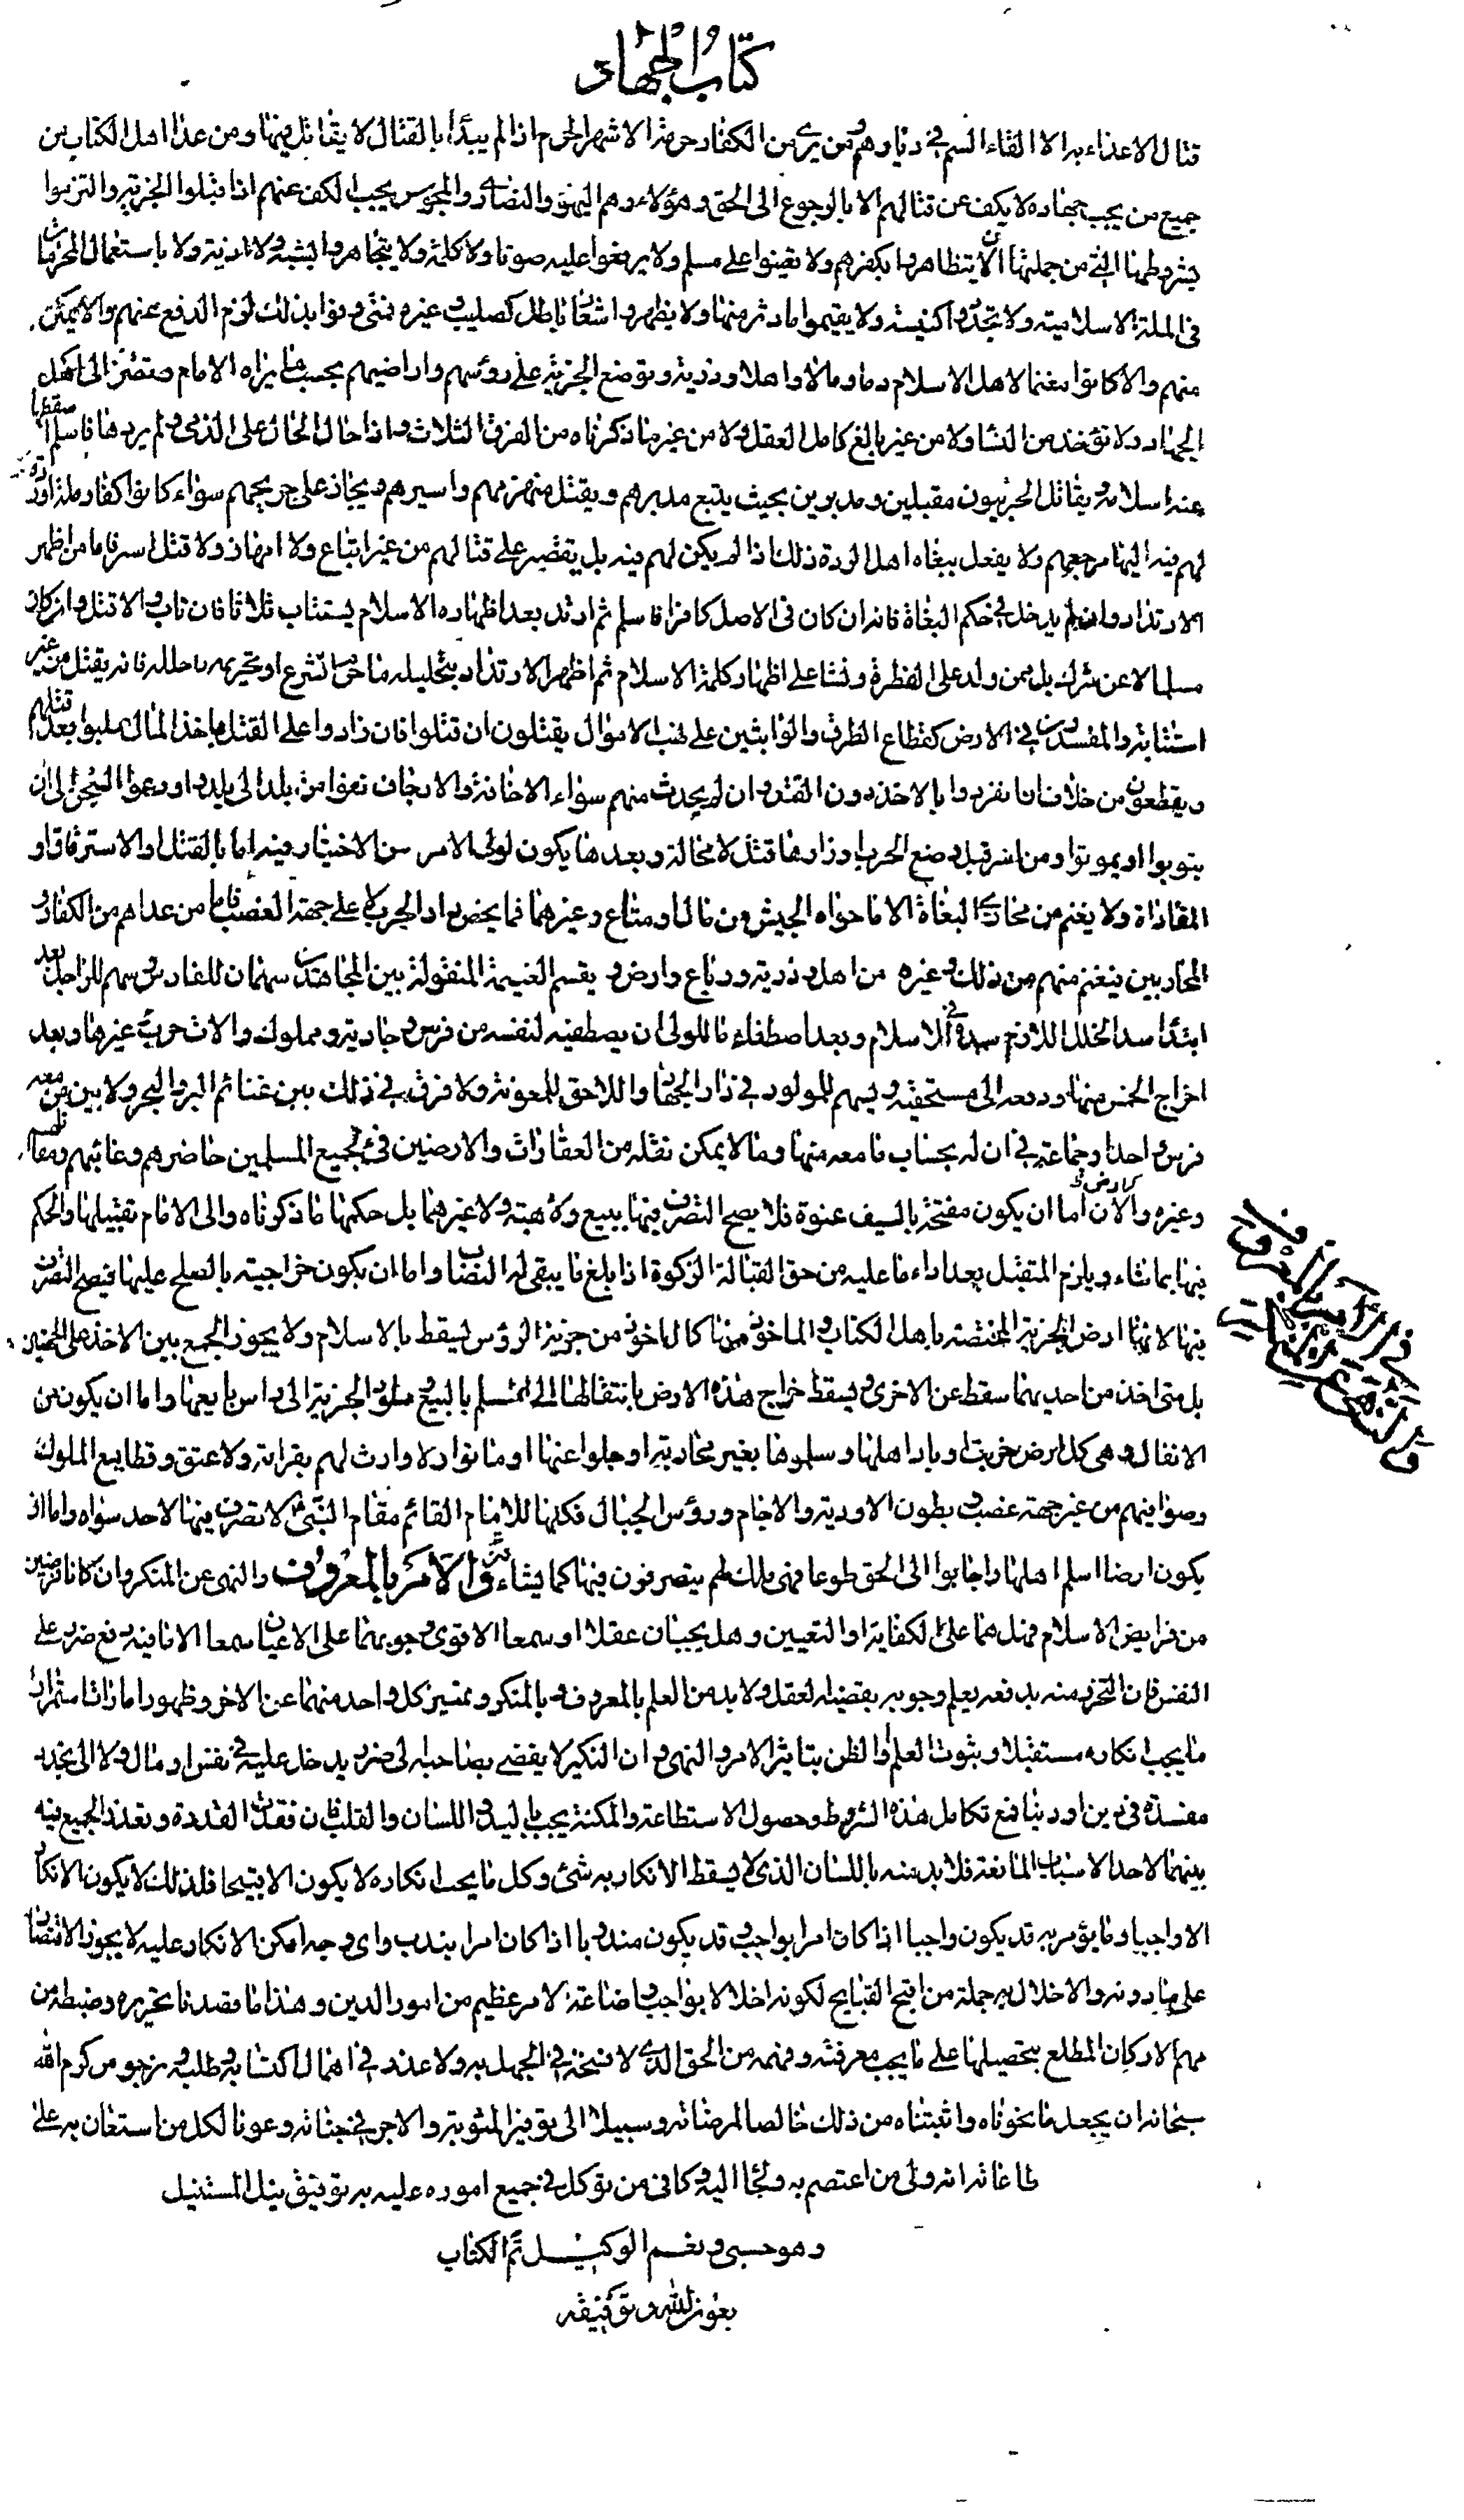 كتاب الجهاد
قتال الاعداء به الا القاء السم في ديارهم ومن يرى من الكفار حرمة الاشهر الحرم اذا لم يبدأ بالقتال لا يقاتل فيها ومن عدا اهل الكتاب من
جميع من يجب جهاده لا يكف عن قتالهم الا بالرجوع الى الحق وهؤلاء وهم اليهود والنصارى والمجوس يجب الكف عنهم اذا قبلوا الجزية والتزموا
بشروطها التي من جملتها ان لا يتظاهروا بكفرهم ولا يعينوا على مسلم ولا يرفعوا عليه صوتا ولا كلمة ولا يتجاهروا بسبه ولا اذيته ولا باستعمال المحرمات
في الملة الاسلامية ولا يجددوا كنيسة ولا يقيموا ما دثر منها ولا يظهروا شعار باطل كصليب وغيره فمتى وفوا بذلك لزم الدفع عنهم والا تمكن
منهم والا كانوا مغنما لاهل الاسلام دما ومالا واهلا وذرية وتوضع الجزية على رؤسهم واراضيهم بحسب ما يراه الامام مصروفة الى اهل
الجهاد ولا تؤخذ من النسا ولا من غير بالغ كامل العقل ولا من غير ما ذكرناه من الفرق الثلاث واذا حال الحال على الذمي ولم يردها فاسلم اسقطها
عنه اسلامه ويقاتل الحربيون مقبلين ومدبرين بحيث يتبع مدبرهم ويقتل منهزمهم واسيرهم ويجاز على جريحهم سواء كانوا كفار ملة او ردة
لهم فيه اليها مرجعهم ولا يفعل ببغاه اهل الردة ذلك اذا لم يكن لهم فيه بل يقتصر على قتالهم من غير اتباع ولا اجهاز ولا قتل اسر فاما من اظهر
الارتداد وان لم يدخل في حكم البغاة فانه ان كان في الاصل كافرا فاسلم ثم ارتد بعد اظهاره الاسلام يستتاب ثلاثا فان تاب والا قتل وان كان
مسلما لا عن شرك بل من ولد على الفطرة ونشا على اظهار كلمة الاسلام ثم اظهر الارتداد بتحليله ما حرمه الشرع او تحريمه ما حلله فانه يقتل من غير
استتابة والمفسدون في الارض كقطاع الطرق والواثبين على نهب الاموال يقتلون ان قتلوا فان زادوا على القتل باخذ المال صلبوا بعد قتلهم
ويقطعون من خلاف ان انفردوا بالاخذ دون القتل وان لم يحدث منهم سواء الاخافة والارجاف نفوا من بلد الى بلد او ردعوا السجن الى ان
يتوبوا او يموتوا ومن اسر قبل وضع الحرب اوزارها قتل لا محالة وبعدها يكون لولي الامر من الاختيار فيه اما بالقتل او الاسترقاق او
المفاداة ولا يغنم من محاربي البغاة الا ما حواه الجيش من مال ومتاع وغيرهما فما يخص دار الحرب لا على جهة الغصب فاما من عداهم من الكفار
المحاربين فيغنم منهم من ذلك وغيره من اهل وذرية ورباع وارض ويقسم الغنيمة المنقولة بين المجاهدين سهمان للفارس وسهم للراجل بعد
ابتداء سد الخلل اللازم سده في الاسلام وبعد اصطفاء ما للولى ان يصطفيه لنفسه من فرس وجارية ومملوك والات حرب وغيرها وبعد
اخراج الخمس منها ودفعه الى مستحقيه ويسهم للمولود في دار الجهاد واللاحق للمعونة ولا فرق في ذلك بين غنائم البر والبحر ولا بين من معه
فرس واحد او جماعة في ان له بحساب ما معه منها وما لا يمكن نقله من العقارات والارضين فئ لجميع المسلمين حاضرهم وغائبهم ومقاتلهم
وغيره والارض اما ان يكون مفتتحة بالسيف عنوة فلا يصح التصرف فيها ببيع ولا هبة ولا غيرهما بل حكمها ما ذكرناه والى الامام تقبيلها والحكم
فيها بما شاء ويلزم المتقبل بعد اداء ما عليه من حق القبالة الزكوة اذا بلغ ما يبقى له النصاب واما ان يكون خراجية بالصلح عليها فيصح التصرف
فيها لانها ارض الجزية المختصة باهل الكتاب والماخوذ منها كالماخوذ من جزية الرؤس يسقط بالاسلام ولا يجوز الجمع بين الاخذ على الجهتين
بل متى اخذ من احديهما سقط عن الاخرى ويسقط خراج هذه الارض بانتقالها الى المسلم بالبيع وتعود الجزية الى راس بايعها واما ان يكون من
الانفال وهي كل ارض خربت او باد اهلها وسلموها بغير محاربة او جلوا عنها او ماتوا ولا وارث لهم بقرابة ولا عتق وقطايع الملوك
وصوافيهم من غير جهة غصب وبطون الاودية والاجام ورؤس الجبال فكلها للامام القائم مقام النبي لا تصرف فيها لاحد سواه واما ان
يكون ارضا اسلم اهلها واجابوا الى الحق طوعا فهي ملك لهم يتصرفون فيها كما يشاءون والامر بالمعروف والنهي عن المنكر وان كانا فرضين
من فرايض الاسلام فهل هما على الكفاية او التعيين وهل يجبان عقلا او سمعا الاقوى وجوبهما على الاعيان سمعا الا ما فيه دفع ضرر على
النفس فان التحرز منه بدفعه يعلم وجوبه بقضية العقل ولابد من العلم بالمعروف وبالمنكر وتمييز كل واحد منهما عن الاخر وظهور امارات استمرار
ما يجب انكاره مستقبلا وثبوت العلم او الظن بتاثير الامر والنهي وان النكير لا يفضي بصاحبه الى ضرر يدخل عليه في نفس او مال ولا الى تجدد
مفسدة في دين او دنيا فمع تكامل هذه الشروط وحصول الاستطاعة والمكنة يجب باليد واللسان والقلب فان فقدت القدرة وتعذر الجمع فيه
بينهما لاحد الاسباب المانعة فلا بد منه باللسان الذي لا يسقط الانكار به شئ وكل ما يجب انكاره لا يكون الا قبيحا فلذلك لا يكون الانكار
الا واجبا وما يؤمر به قد يكون واجبا اذا كان امرا بواجب وقد يكون مندوبا اذا كان امرا بندب واى وجه امكن الانكار عليه لا يجوز الاقتصار
على ما دونه والاخلال به جملة من اقبح القبايح لكونه اخلالا بواجب واضاعة لامر عظيم من امور الدين وهذا ما قصدنا تحريره وضبطه من
مهم الاركان المطلع بتحصيلها على ما يجب معرفته وفهمه من الحق الذي لا فسحة في الجهل به ولا عذر في اهمال اكتسابه وطلبه ونرجو من كرم الله
سبحانه ان يجعل ما نحوناه واثبتناه من ذلك خالصا لمرضاته وسبيلا الى توفير المثوبة والاجر في جناته وعونا لكل من استعان به على
طاعاته انه ولي من اعتصم به ولجأ اليه وكافي من توكل في جميع اموره عليه به توفيق ينيل المستنيل
وهو حسبي ونعم الوكيل تم الكتاب
بعون الله وتوفيقه